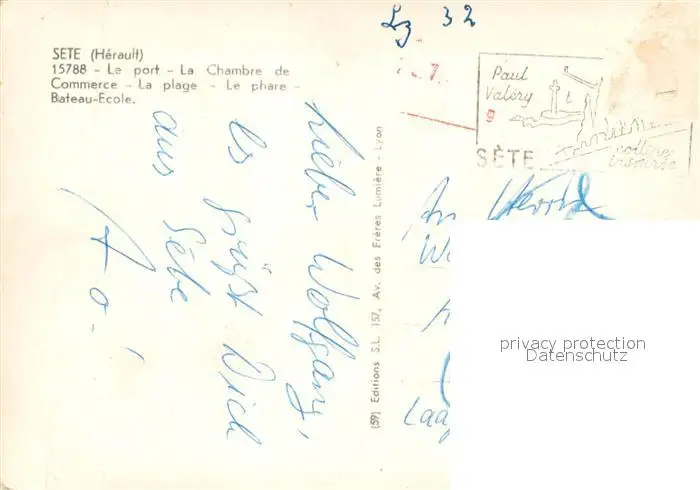 SETE (Hérault)
15788 - Le port - La Chambre de
Commerce - La plage - Le phare -
Bateau-Ecole.
Lz 32
Paul
Valéry
SÈTE
colline
inspirée
Lieber Wolfgang,
es grüßt Dich
aus Sète
(59) Editions S.L. 157, Av. des Frères Lumière - Lyon
An Herrn
privacy protection
Datenschutz